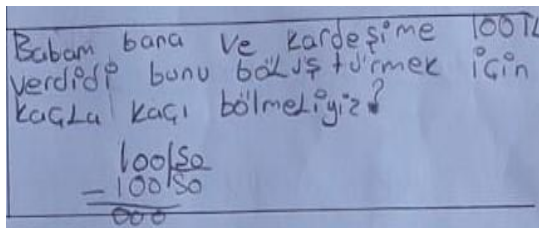 Babam bana ve kardeşime 100TL
verdidi bunu bölüştürmek için
kaçla kaçı bölmeliyiz?
100|50
- 100 50
000